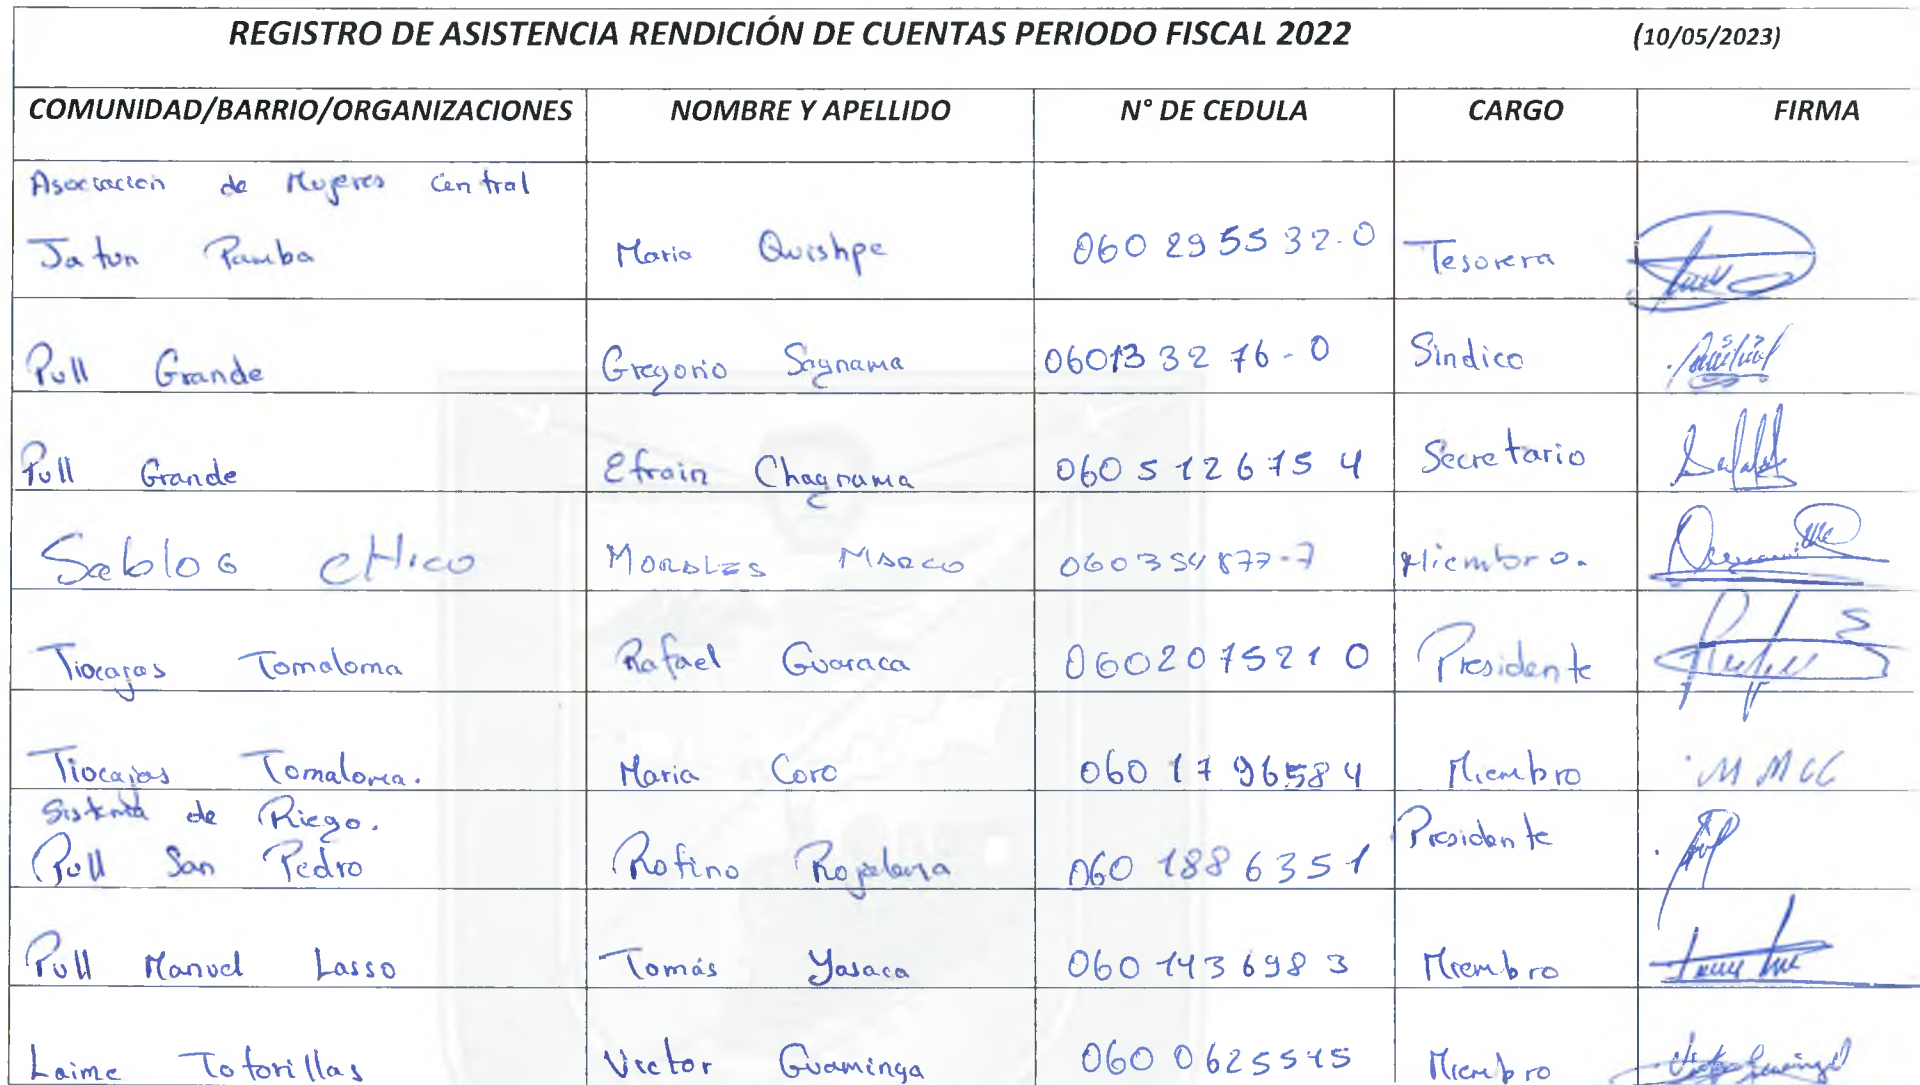 REGISTRO DE ASISTENCIA RENDICIÓN DE CUENTAS PERIODO FISCAL 2022 (10/05/2023)
COMUNIDAD/BARRIO/ORGANIZACIONES NOMBRE Y APELLIDO N° DE CEDULA CARGO FIRMA
Asociacion de Mujeres Central
Jatun Pamba Maria Quishpe 060 295532-0 Tesorera
Pull Grande Gregorio Sagnama 060133276-0 Sindico
Pull Grande Efrain Chagnama 0605126754 Secretario
Sablog cHico MORALES MARCO 060354877-7 Miembro.
Tiocajas Tomaloma Rafael Guaraca 0602075210 Presidente
Tiocajas Tomaloma. Maria Coro 0601796584 Miembro M M C C
Sistema de Riego.
Pull San Pedro Rofino 060 1886351 Presidente
Pull Manuel Lasso Tomás Yasaca 060 1436983 Miembro
Laime Totorillas Victor Guaminga 060 0625575 Miembro